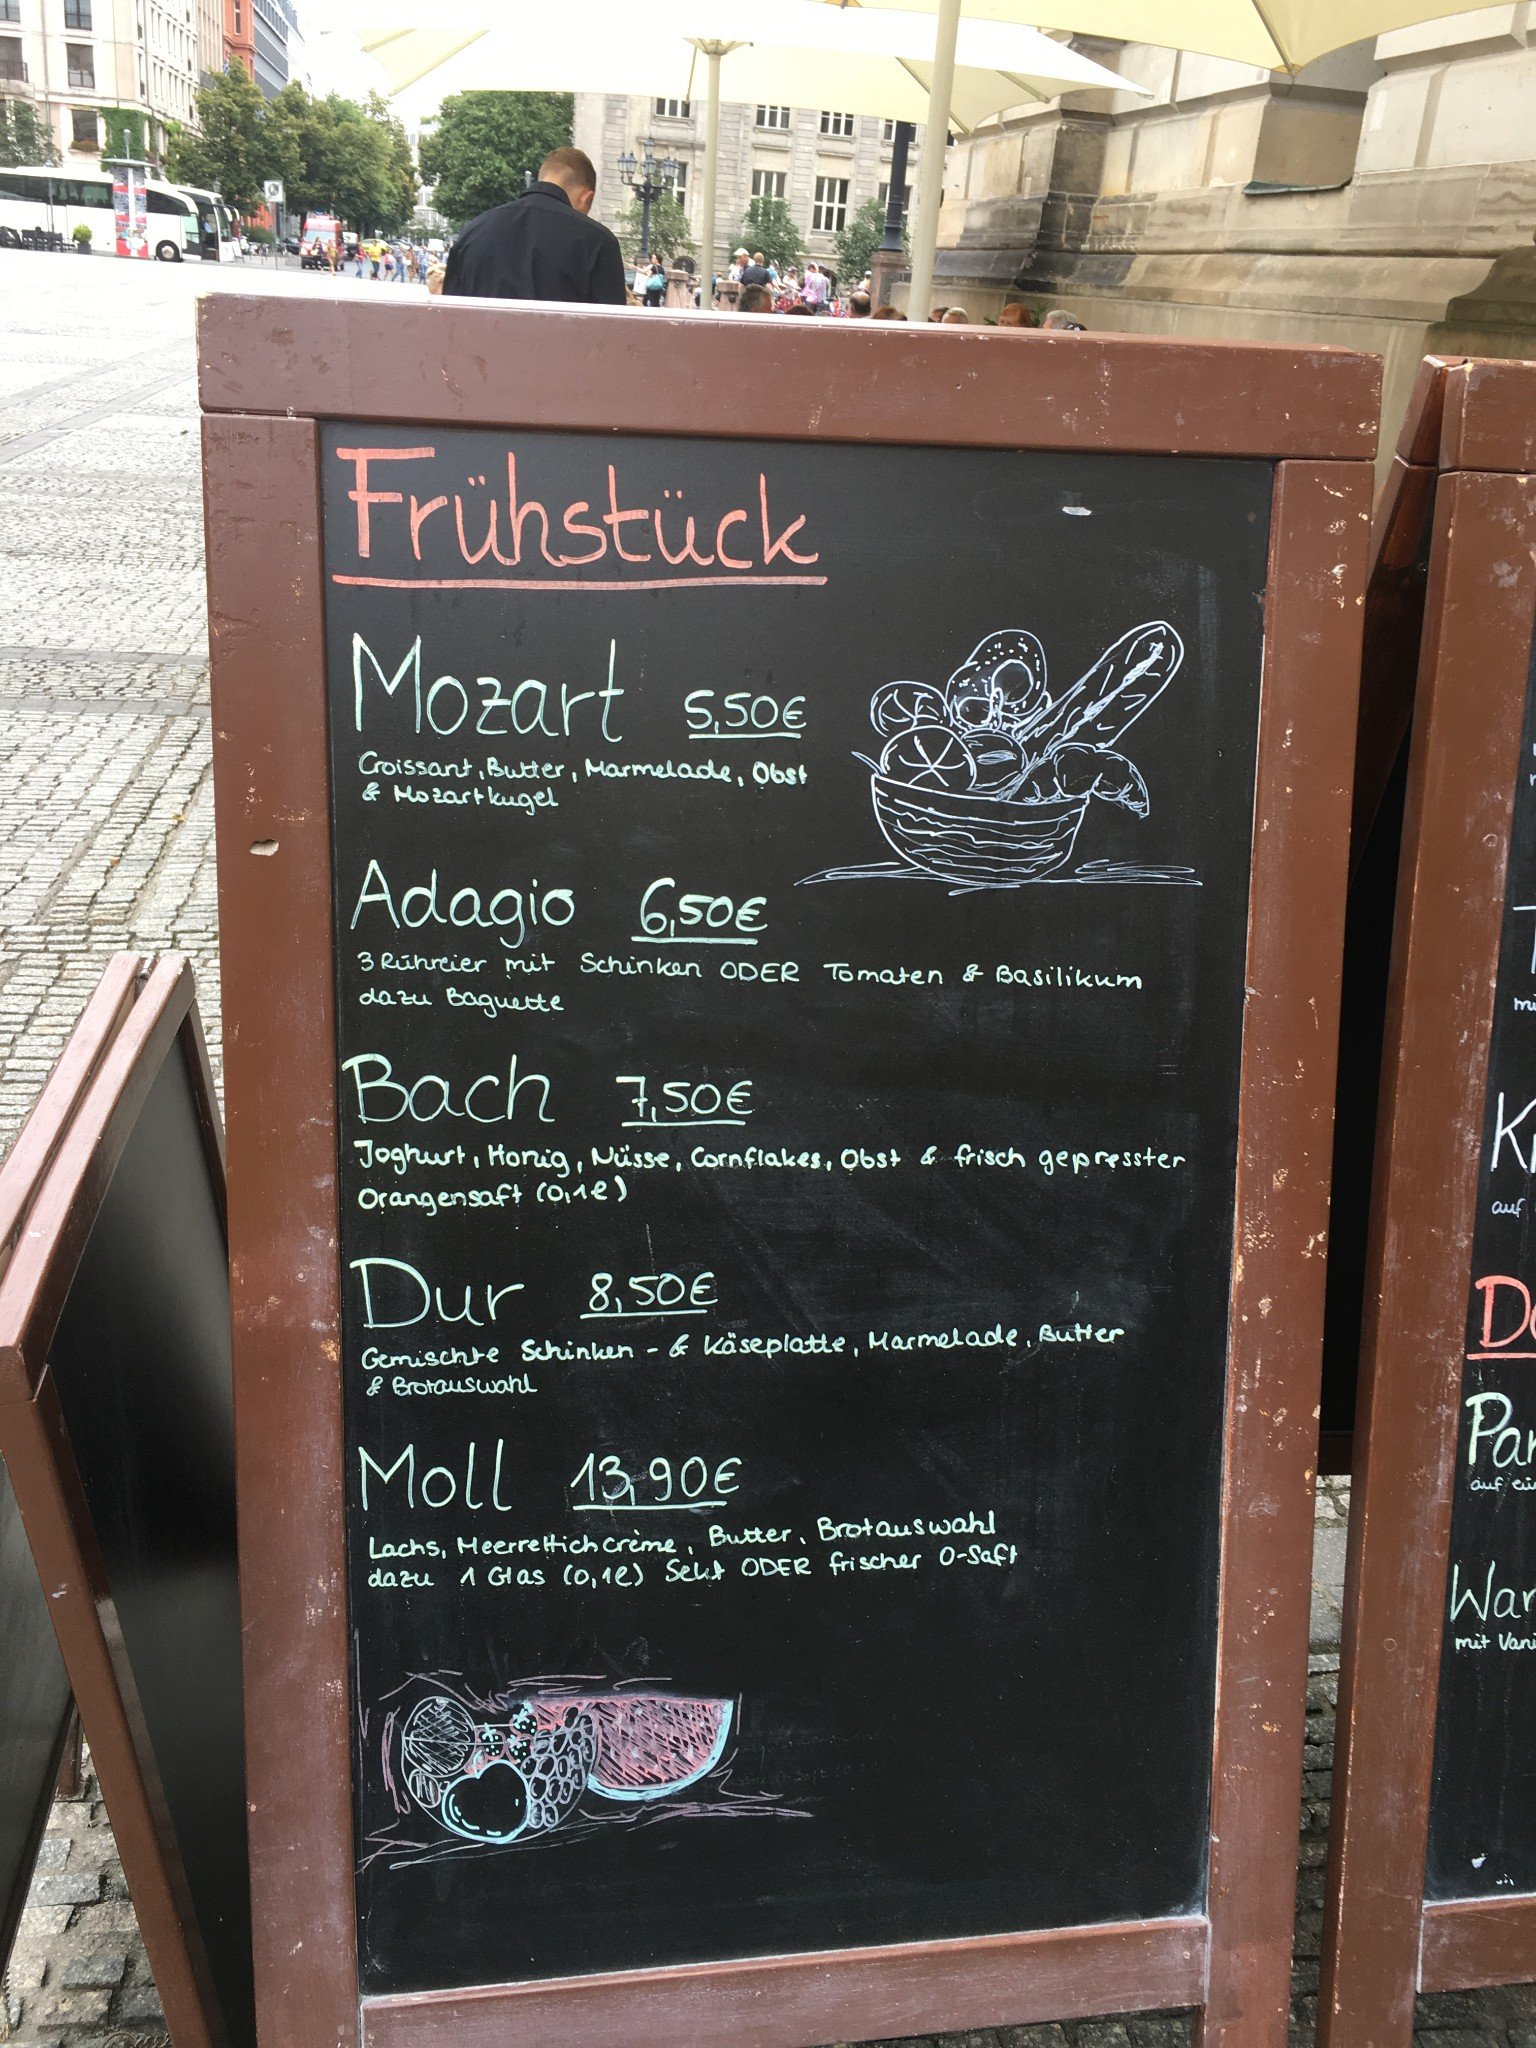 Frühstück
Mozart 5,50€
Croissant, Butter, Marmelade, Obst
& Mozartkugel
Adagio 6,50€
3 Rühreier mit Schinken ODER Tomaten & Basilikum
dazu Baguette
Bach 7,50€
Joghurt, Honig, Nüsse, Cornflakes, Obst & frisch gepresster
Orangensaft (0,1l)
Dur 8,50€
Gemischte Schinken- & Käseplatte, Marmelade, Butter
& Brotauswahl
Moll 13,90€
Lachs, Meerrettichcrème, Butter, Brotauswahl
dazu 1 Glas (0,1l) Sekt ODER frischer O-Saft
auf
Par
auf ein
War
mit Vani